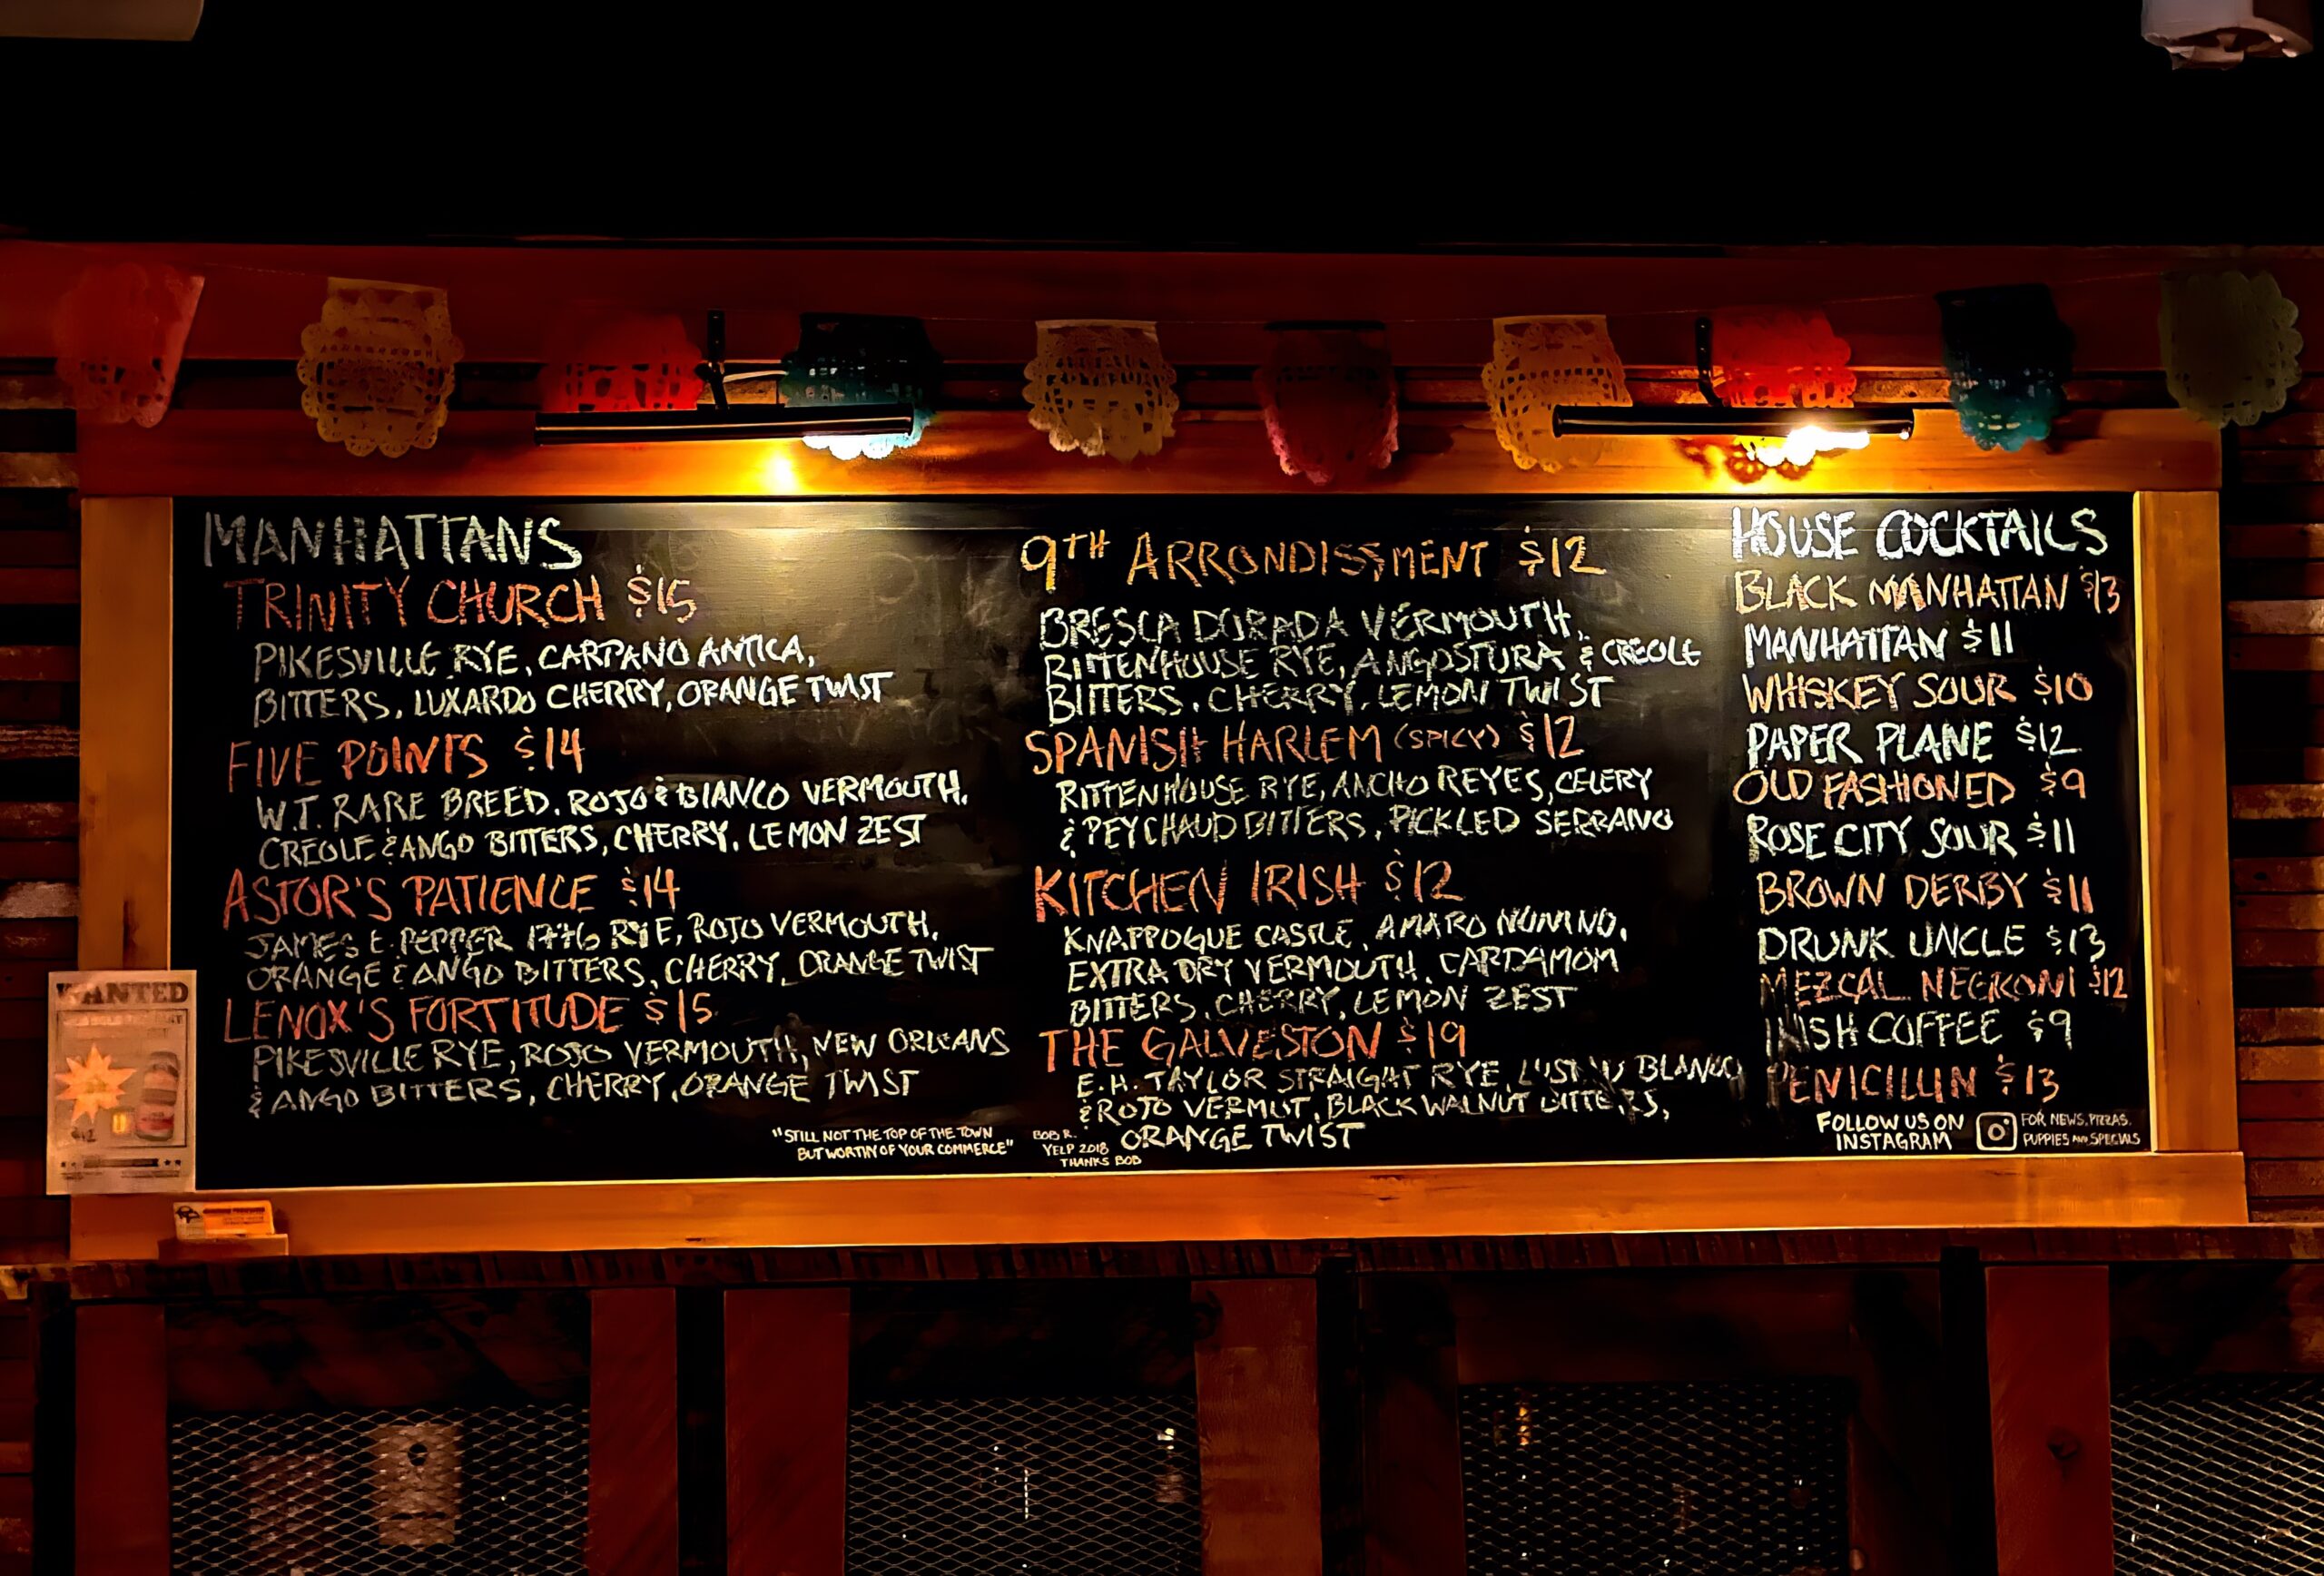 MANHATTANS
TRINITY CHURCH $15
PIKESVILLE RYE, CARPANO ANTICA,
BITTERS, LUXARDO CHERRY, ORANGE TWIST
FIVE POINTS $14
W.T. RARE BREED, ROJO & BIANCO VERMOUTH,
CREOLE & ANGO BITTERS, CHERRY, LEMON ZEST
ASTOR'S PATIENCE $14
JAMES E. PEPPER 1776 RYE, ROJO VERMOUTH,
ORANGE & ANGO BITTERS, CHERRY, ORANGE TWIST
LENOX'S FORTITUDE $15
PIKESVILLE RYE, ROJO VERMOUTH, NEW ORLEANS
& ANGO BITTERS, CHERRY, ORANGE TWIST
"STILL NOT THE TOP OF THE TOWN
BUT WORTHY OF YOUR COMMERCE"
BOB R.
YELP 2018
THANKS BOB
9TH ARRONDISSMENT $12
BRESCA DORADA VERMOUTH,
RITTENHOUSE RYE, ANGOSTURA & CREOLE
BITTERS, CHERRY, LEMON TWIST
SPANISH HARLEM (SPICY) $12
RITTENHOUSE RYE, ANCHO REYES, CELERY
& PEYCHAUD BITTERS, PICKLED SERRANO
KITCHEN IRISH $12
KNAPPOGUE CASTLE, AMARO NONINO,
EXTRA DRY VERMOUTH, CARDAMOM
BITTERS, CHERRY, LEMON ZEST
THE GALVESTON $19
E.H. TAYLOR STRAIGHT RYE, BLANCO
& ROJO VERMUT, BLACK WALNUT BITTERS,
ORANGE TWIST
HOUSE COCKTAILS
BLACK MANHATTAN $13
MANHATTAN $11
WHISKEY SOUR $10
PAPER PLANE $12
OLD FASHIONED $9
ROSE CITY SOUR $11
BROWN DERBY $11
DRUNK UNCLE $13
MEZCAL NEGRONI $12
IRISH COFFEE $9
PENICILLIN $13
FOLLOW US ON
INSTAGRAM
FOR NEWS, PIZZAS,
PUPPIES AND SPECIALS
WANTED